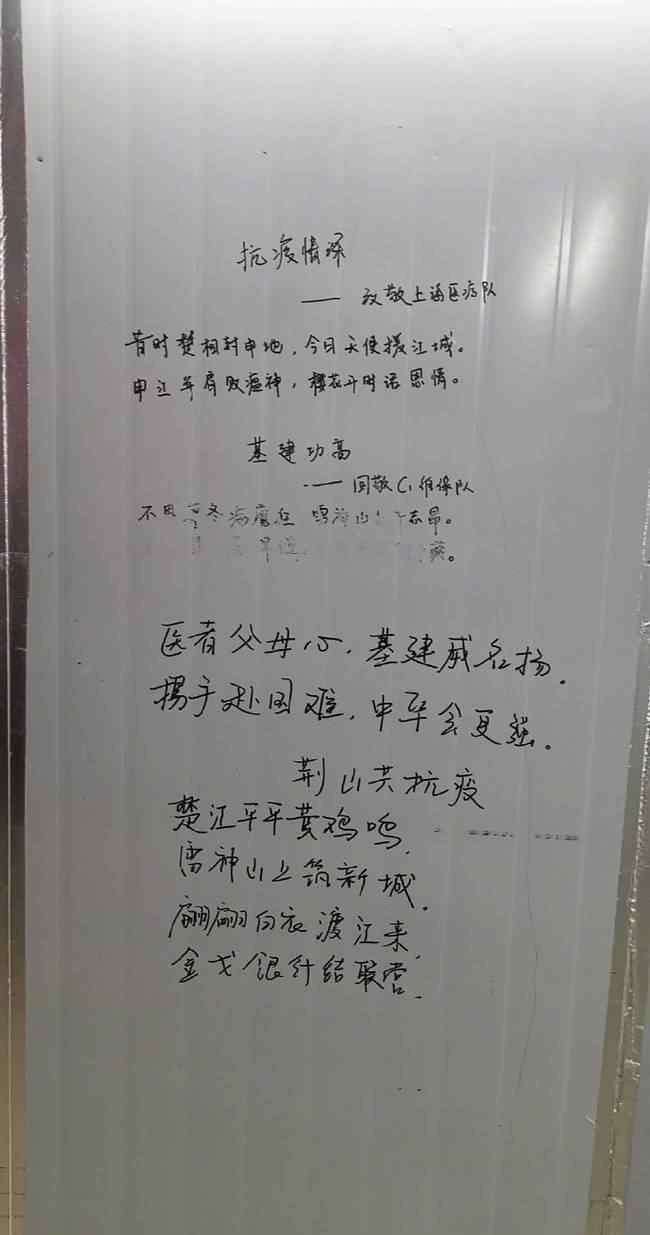 抗疫情深
——致敬上海医疗队
昔时楚相封申地，今日天使援江城。
申江并肩败瘟神，樱花开时话恩情。
基建功高
——回敬C1维保队
不因寒冬病魔在 雷神山上 志昂。
早
医者父母心，基建威名扬。
携手赴国难，中华会更强。
荆山共抗疫
楚江平平黄鸡鸣，
雷神山上筑新城，
翩翩白衣渡江来，
金戈银针结联营.